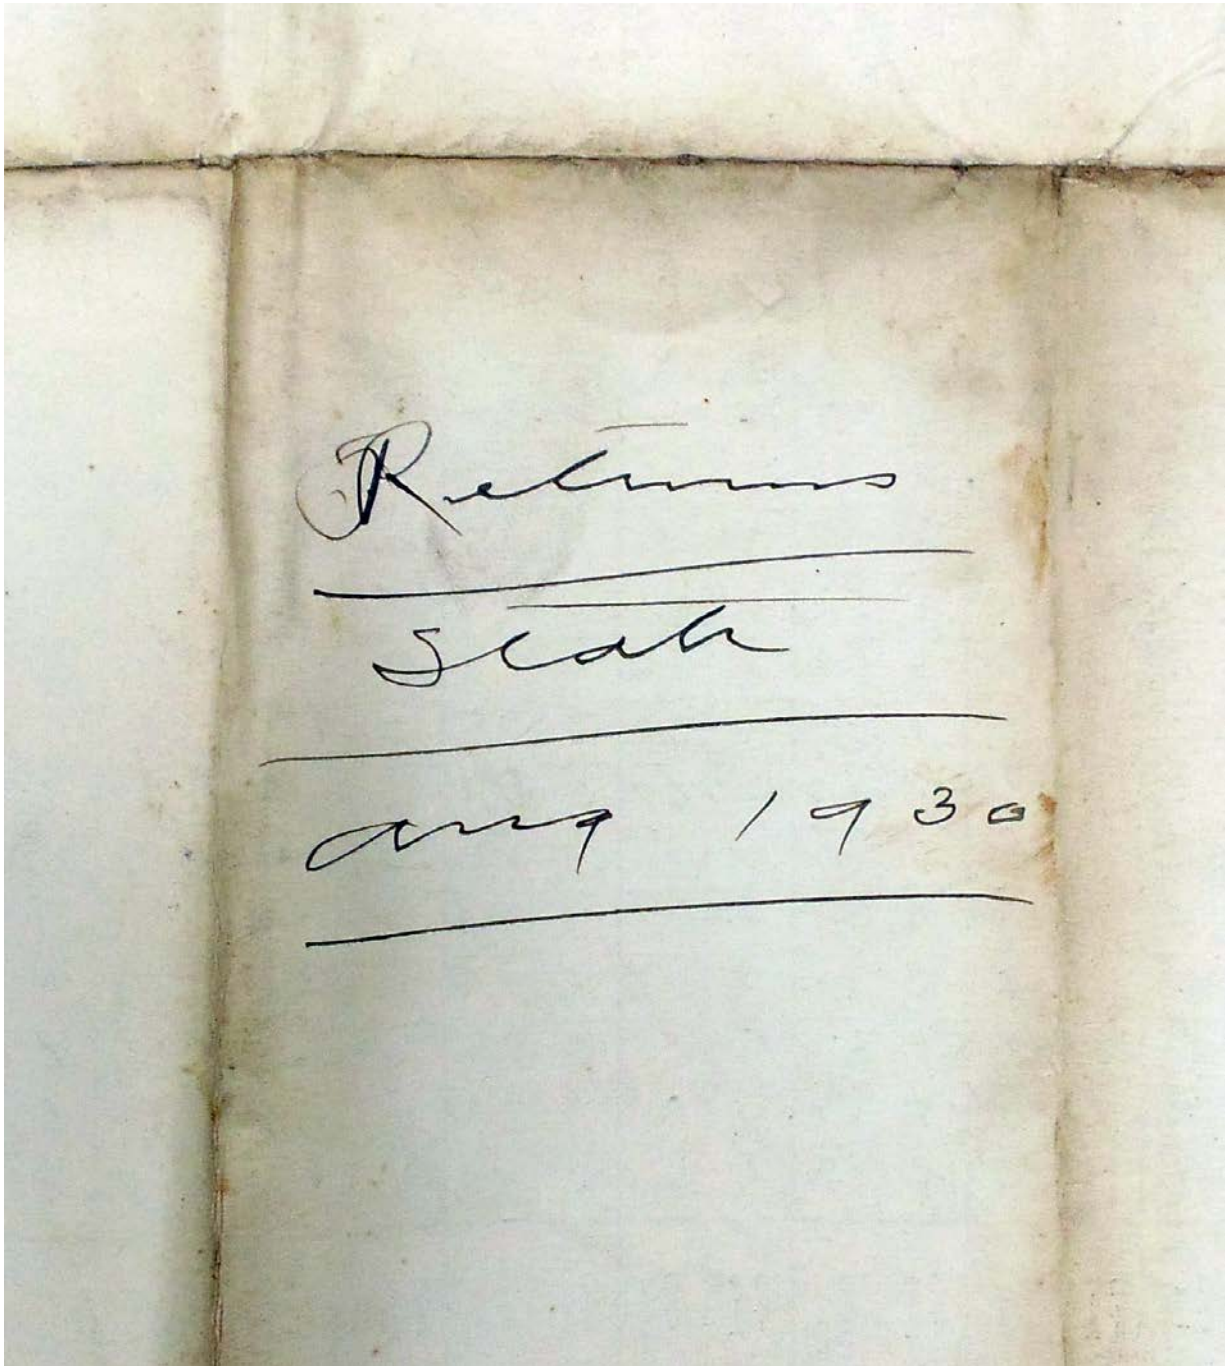 Returns
State
Aug 1930